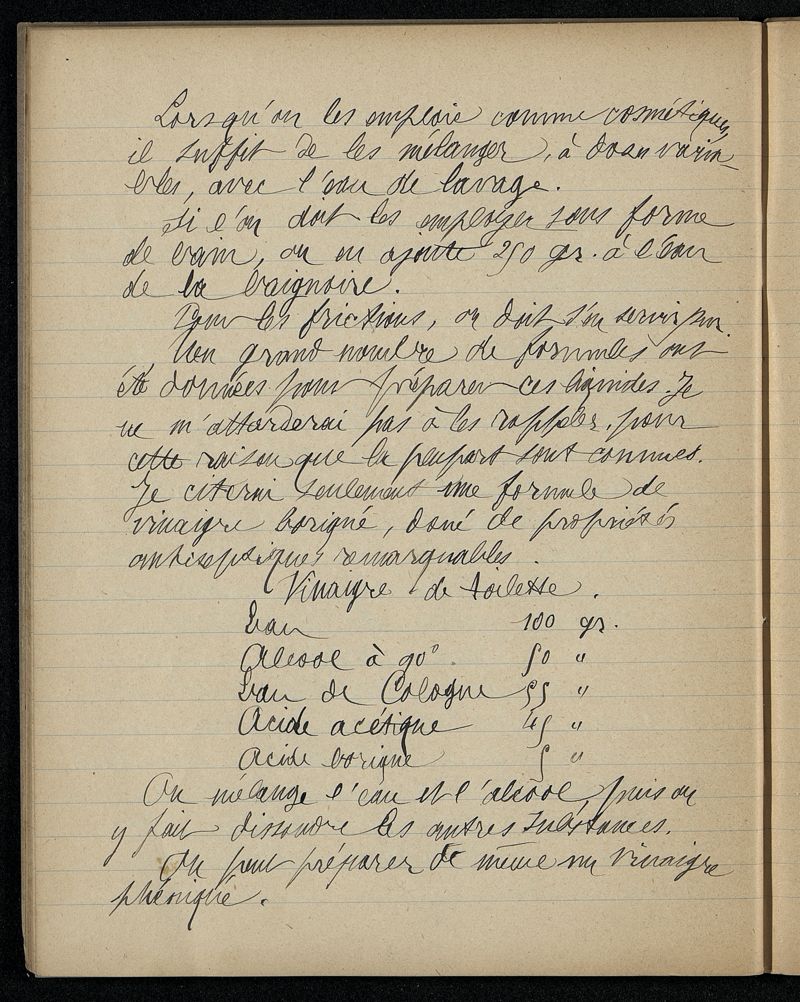 Lorsqu'on les emploie comme cosmétiques,
il suffit de les mélanger, à doses varia-
bles, avec l'eau de lavage.
Si l'on doit les employer sous forme
de bain, on en ajoute 250 gr. à l'eau
de la baignoire.
Pour les frictions, on doit s'en servir pur.
Un grand nombre de formules ont
été données pour préparer ces liquides. Je
ne m'attarderai pas à les rappeler, pour
cette raison que la plupart sont connues.
Je citerai seulement une formule de
vinaigre boriqué, doué de propriétés
antiseptiques remarquables.
Vinaigre de toilette.
Eau 100 gr.
Alcool à 90° 50 "
Eau de Cologne 55 "
Acide acétique 45 "
Acide borique 5 "
On mélange l'eau et l'alcool, puis on
y fait dissoudre les autres substances.
On peut préparer de même un vinaigre
phéniqué.